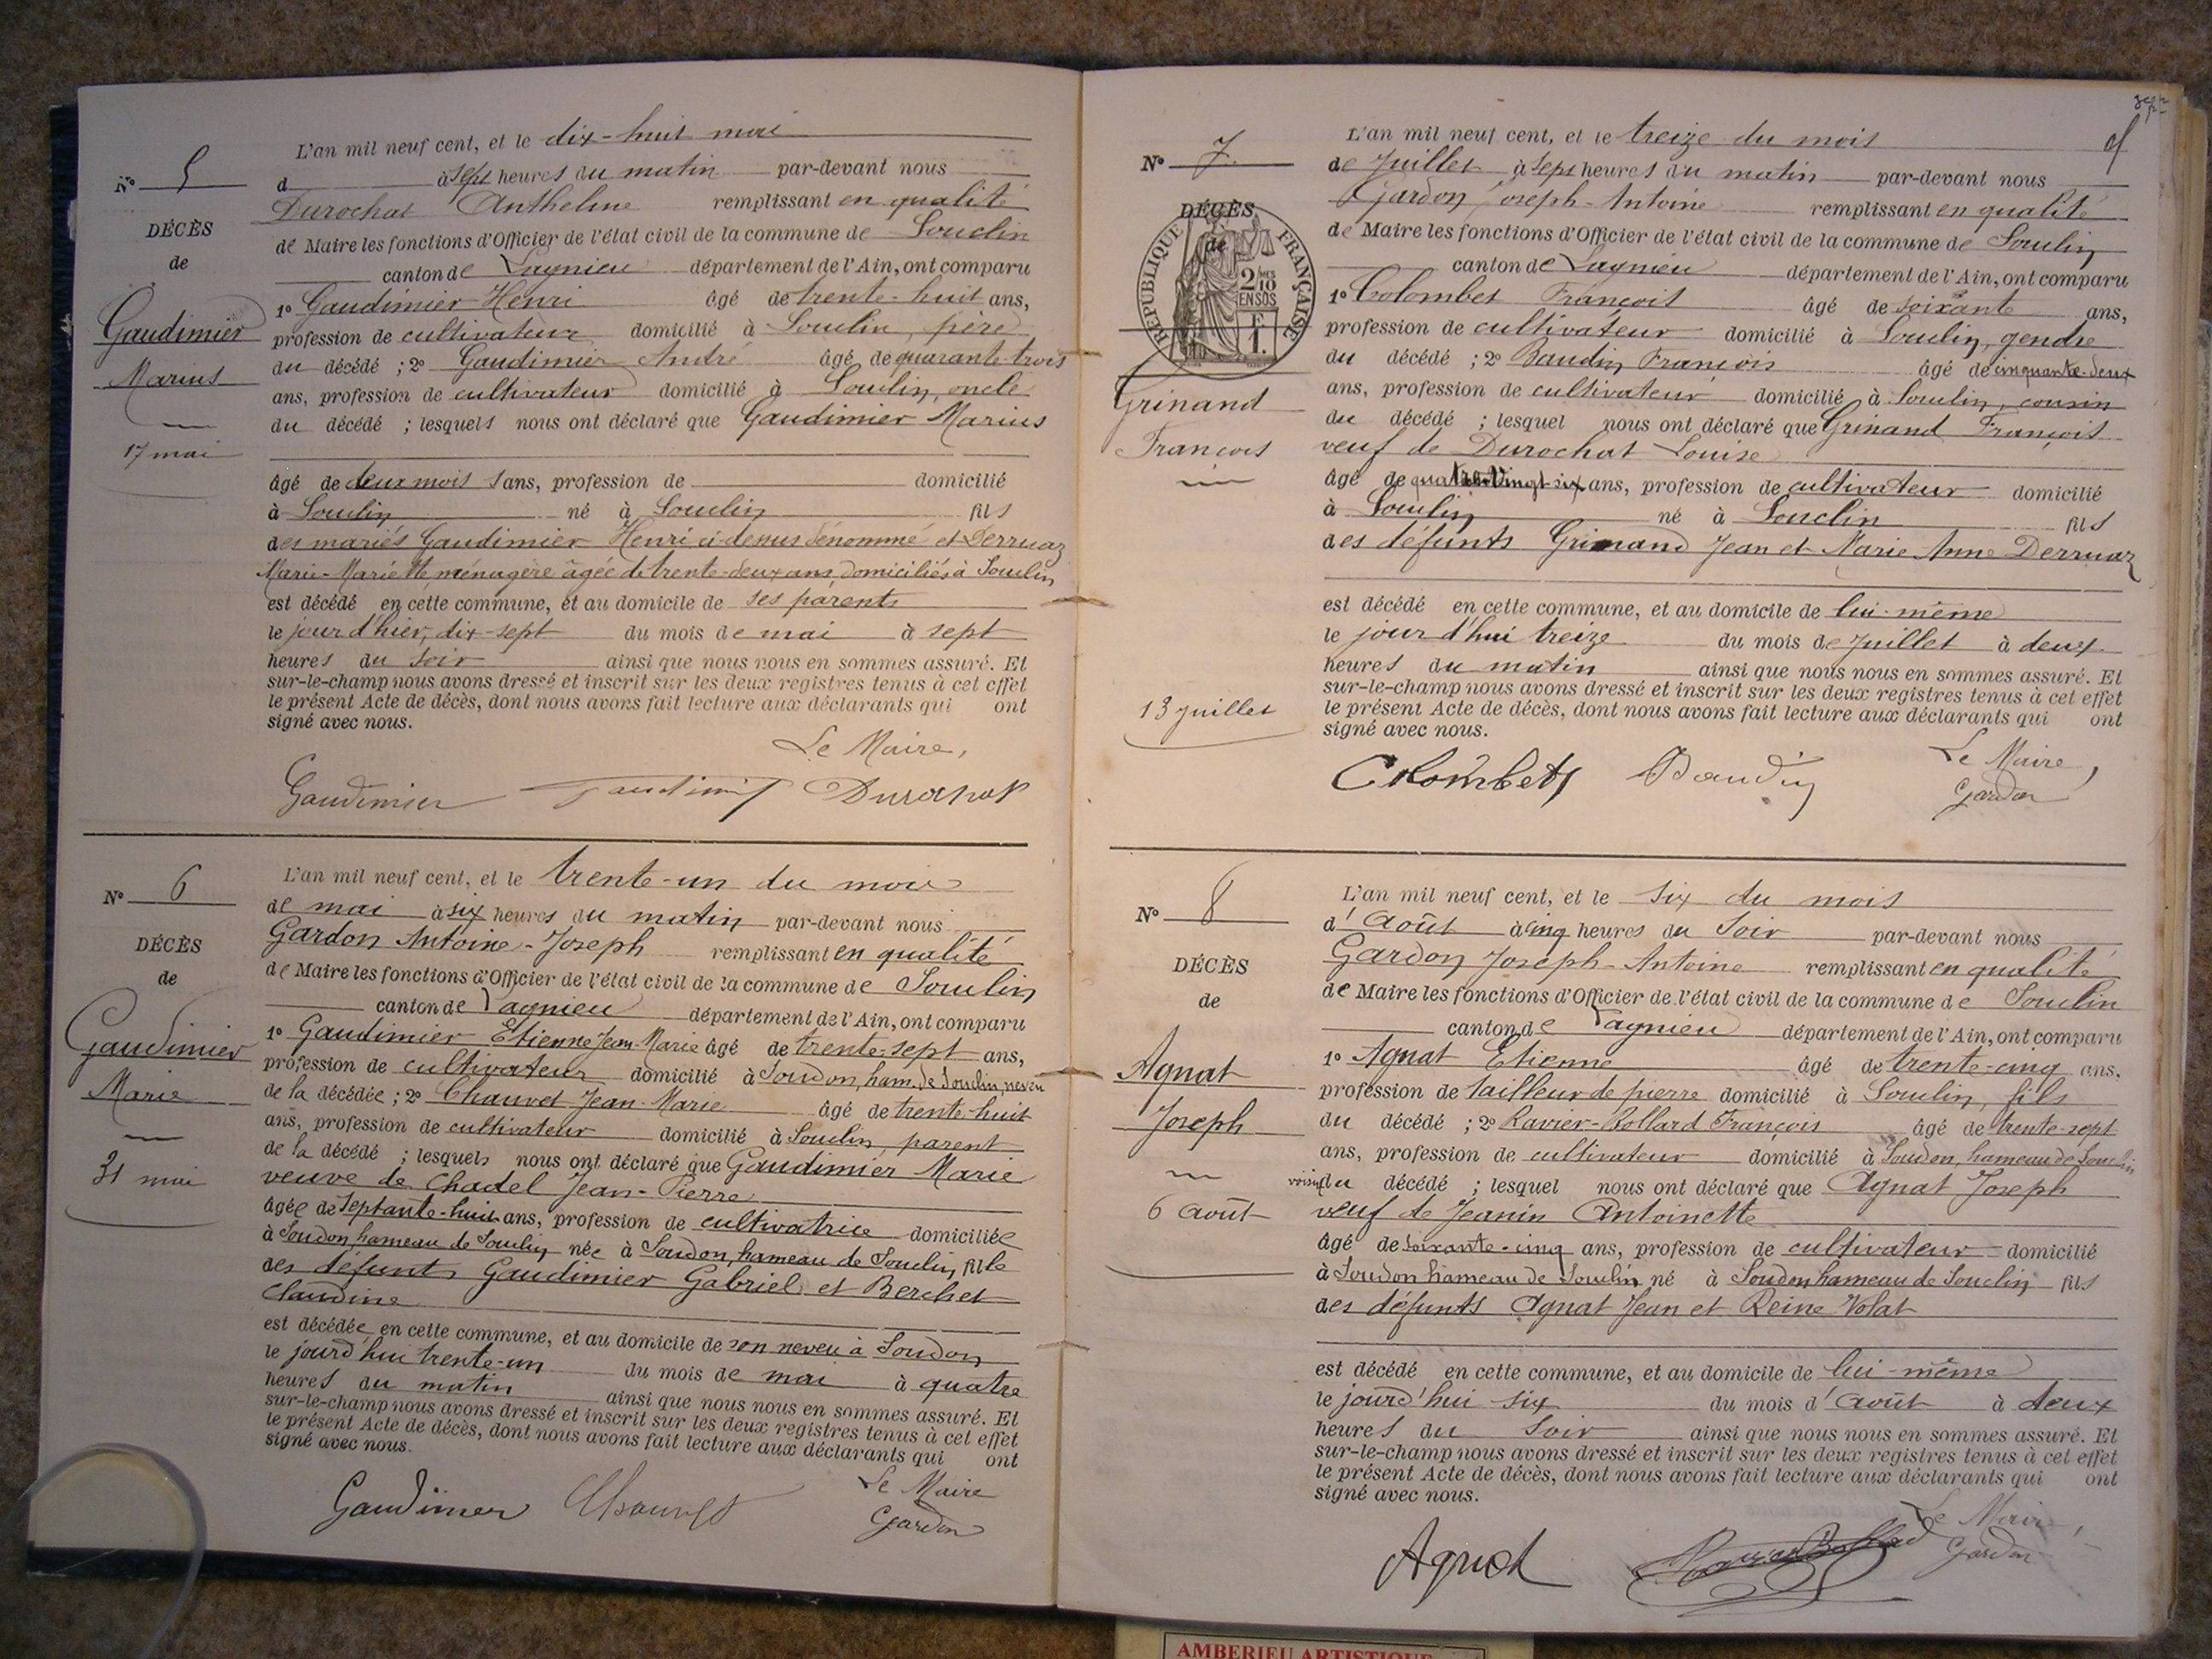 L'an mil neuf cent, et le dix-huit mai
N° 5
d à sept heures du matin par-devant nous
Durochat Anthelme remplissant en qualité
DÉCÈS
de Maire les fonctions d'Officier de l'état civil de la commune de Souclin
de
canton de Lagnieu département de l'Ain, ont comparu
1° Gaudimier Henri âgé de trente-huit ans,
Gaudimier
profession de cultivateur domicilié à Souclin, père
du décédé ; 2° Gaudimier André âgé de quarante-trois
Marius
ans, profession de cultivateur domicilié à Souclin, oncle
du décédé ; lesquels nous ont déclaré que Gaudimier Marius
17 mai
âgé de deux mois sans, profession de domicilié
à Souclin né à Souclin fils
des mariés Gaudimier Henri ci-dessus dénommé et Derruaz
Marie-Mariette, ménagère âgée de trente-deux ans, domiciliés à Souclin
est décédé en cette commune, et au domicile de ses parents
le jour d'hier, dix-sept du mois de mai à sept
heures du soir ainsi que nous nous en sommes assuré. Et
sur-le-champ nous avons dressé et inscrit sur les deux registres tenus à cet effet
le présent Acte de décès, dont nous avons fait lecture aux déclarants qui ont
signé avec nous.
Le Maire,
Gaudimier Gaudimier Durochat
L'an mil neuf cent, et le trente-un du mois
N° 6
de mai à six heures du matin par-devant nous
Gardon Antoine-Joseph remplissant en qualité
DÉCÈS
de Maire les fonctions d'Officier de l'état civil de la commune de Souclin
de
canton de Lagnieu département de l'Ain, ont comparu
1° Gaudimier Etienne Jean-Marie âgé de trente-sept ans,
Gaudimier
profession de cultivateur domicilié à Soudon, ham. de Souclin, neveu
Marie
de la décédée ; 2° Chauvet Jean-Marie âgé de trente-huit
ans, profession de cultivateur domicilié à Souclin, parent
de la décédé ; lesquels nous ont déclaré que Gaudimier Marie
31 mai
veuve de Chadel Jean-Pierre
âgée de septante-huit ans, profession de cultivatrice domiciliée
à Soudon, hameau de Souclin née à Soudon, hameau de Souclin, fille
des défunts Gaudimier Gabriel et Berchet
Claudine
est décédée en cette commune, et au domicile de son neveu à Soudon
le jourd'hui trente-un du mois de mai à quatre
heures du matin ainsi que nous nous en sommes assuré. Et
sur-le-champ nous avons dressé et inscrit sur les deux registres tenus à cet effet
le présent Acte de décès, dont nous avons fait lecture aux déclarants qui ont
signé avec nous.
Le Maire
Gaudimier Chauvet Gardon
L'an mil neuf cent, et le treize du mois
N° 7
de Juillet à sept heures du matin par-devant nous
Gardon Joseph-Antoine remplissant en qualité
DÉCÈS
de
RÉPUBLIQUE FRANÇAISE
2/10 EN SUS
F. 1.
de Maire les fonctions d'Officier de l'état civil de la commune de Souclin
canton de Lagnieu département de l'Ain, ont comparu
1° Colombet François âgé de soixante ans,
profession de cultivateur domicilié à Souclin, gendre
du décédé ; 2° Baudin François âgé de cinquante-deux
Grinand
ans, profession de cultivateur domicilié à Souclin, cousin
du décédé ; lesquel nous ont déclaré que Grinand François
François
veuf de Durochat Louise
âgé de quatre-vingt-six ans, profession de cultivateur domicilié
à Souclin né à Souclin fils
des défunts Grinand Jean et Marie Anne Derruaz
est décédé en cette commune, et au domicile de lui-même
le jour d'hui treize du mois de Juillet à deux
heures du matin ainsi que nous nous en sommes assuré. Et
sur-le-champ nous avons dressé et inscrit sur les deux registres tenus à cet effet
13 Juillet
le présent Acte de décès, dont nous avons fait lecture aux déclarants qui ont
signé avec nous.
Le Maire,
Colombet Baudin Gardon
L'an mil neuf cent, et le six du mois
N° 8
d'Août à cinq heures du soir par-devant nous
Gardon Joseph-Antoine remplissant en qualité
DÉCÈS
de Maire les fonctions d'Officier de l'état civil de la commune de Souclin
de
canton de Lagnieu département de l'Ain, ont comparu
1° Agnat Etienne âgé de trente-cinq ans,
Agnat
profession de tailleur de pierre domicilié à Souclin, fils
Joseph
du décédé ; 2° Ravier-Rollard François âgé de trente-sept
ans, profession de cultivateur domicilié à Soudon, hameau de Souclin
voisin du décédé ; lesquel nous ont déclaré que Agnat Joseph
6 Août
veuf de Jeanin Antoinette
âgé de soixante-cinq ans, profession de cultivateur domicilié
à Soudon hameau de Souclin né à Soudon hameau de Souclin fils
des défunts Agnat Jean et Reine Volat
est décédé en cette commune, et au domicile de lui-même
le jourd'hui six du mois d'Août à deux
heures du soir ainsi que nous nous en sommes assuré. Et
sur-le-champ nous avons dressé et inscrit sur les deux registres tenus à cet effet
le présent Acte de décès, dont nous avons fait lecture aux déclarants qui ont
signé avec nous.
Le Maire,
Agnat Gardon
AMBERIEU ARTISTIQUE